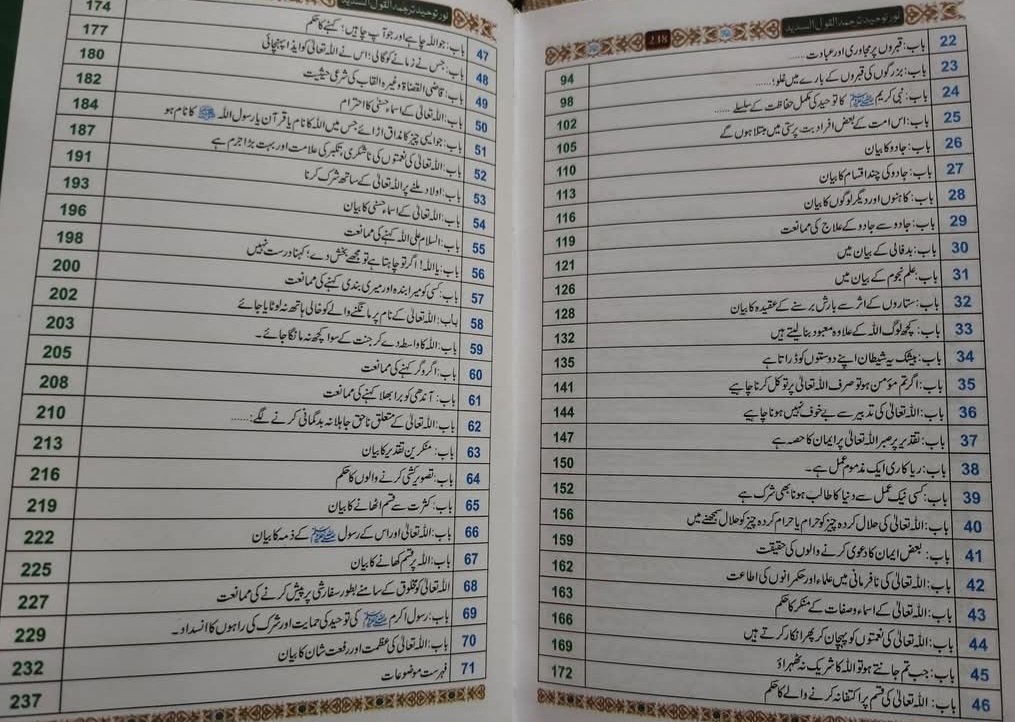 نور توحید ترجمہ القول السدید
238
22 باب: قبروں پر مجاوری اور عبادت......
23 باب: بزرگوں کی قبروں کے بارے میں غلو؛...... 94
24 باب: نبی کریم ﷺ کا توحید کی مکمل حفاظت کے سلسلے...... 98
25 باب: اس امت کے بعض افراد بت پرستی میں مبتلا ہوں گے 102
26 باب: جادو کا بیان 105
27 باب: جادو کی چند اقسام کا بیان 110
28 باب: کاہنوں اور دیگر لوگوں کا بیان 113
29 باب: جادو سے جادو کے علاج کی ممانعت 116
30 باب: بدفالی کے بیان میں 119
31 باب: علم نجوم کے بیان میں 121
32 باب: ستاروں کے اثر سے بارش برسنے کے عقیدہ کا بیان 126
33 باب: کچھ لوگ اللہ کے علاوہ معبود بنا لیتے ہیں 128
34 باب: بیشک یہ شیطان اپنے دوستوں کو ڈراتا ہے 132
35 باب: اگر تم مؤمن ہو تو صرف اللہ تعالیٰ پر توکل کرنا چاہیے 135
36 باب: اللہ تعالیٰ کی تدبیر سے بے خوف نہیں ہونا چاہیے 141
37 باب: تقدیر پر صبر اللہ تعالیٰ پر ایمان کا حصہ ہے 144
38 باب: ریاکاری ایک مذموم عمل ہے۔ 147
39 باب: کسی نیک عمل سے دنیا کا طالب ہونا بھی شرک ہے 150
40 باب: اللہ تعالیٰ کی حلال کردہ چیز کو حرام یا حرام کردہ چیز کو حلال سمجھنے میں 152
41 باب: بعض ایمان کا دعویٰ کرنے والوں کی حقیقت 156
42 باب: اللہ تعالیٰ کی نافرمانی میں علماء اور حکمرانوں کی اطاعت 159
43 باب: اللہ تعالیٰ کے اسماء وصفات کے منکر کا حکم 162
44 باب: اللہ تعالیٰ کی نعمتوں کو پہچان کر پھر انکار کرتے ہیں 163
45 باب: جب تم جانتے ہو تو اللہ کا شریک نہ ٹھہراؤ 166
46 باب: اللہ تعالیٰ کی قسم پر اکتفا نہ کرنے والے کا حکم 169
172
نور توحید ترجمہ القول السدید
174
47 باب: جو اللہ چاہے اور جو آپ چاہیں؛ کہنے کا حکم 177
48 باب: جس نے زمانے کو گالی دی؛ اس نے اللہ تعالیٰ کو ایذا پہنچائی 180
49 باب: قاضی القضاۃ وغیرہ القاب کی شرعی حیثیت 182
50 باب: اللہ تعالیٰ کے اسماء حسنیٰ کا احترام 184
51 باب: جو ایسی چیز کا مذاق اڑائے جس میں اللہ کا نام یا قرآن یا رسول اللہ ﷺ کا نام ہو 187
52 باب: اللہ تعالیٰ کی نعمتوں کی ناشکری، تکبر کی علامت اور بہت بڑا جرم ہے 191
53 باب: اولاد ملنے پر اللہ تعالیٰ کے ساتھ شرک کرنا 193
54 باب: اللہ تعالیٰ کے اسماء حسنیٰ کا بیان 196
55 باب: السلام علی اللہ کہنے کی ممانعت 198
56 باب: یا اللہ! اگر تو چاہتا ہے تو مجھے بخش دے؛ کہنا درست نہیں 200
57 باب: کسی کو میرا بندہ اور میری بندی کہنے کی ممانعت 202
58 باب: اللہ تعالیٰ کے نام پر مانگنے والے کو خالی ہاتھ نہ لوٹایا جائے 203
59 باب: اللہ کا واسطہ دے کر جنت کے سوا کچھ نہ مانگا جائے۔ 205
60 باب: اگر وگر کہنے کی ممانعت 208
61 باب: آندھی کو برا بھلا کہنے کی ممانعت 210
62 باب: اللہ تعالیٰ کے متعلق ناحق جاہلانہ بدگمانی کرنے لگے:...... 213
63 باب: منکرین تقدیر کا بیان 216
64 باب: تصویر کشی کرنے والوں کا حکم 219
65 باب: کثرت سے قسم اٹھانے کا بیان 222
66 باب: اللہ تعالیٰ اور اس کے رسول ﷺ کے ذمہ کا بیان 225
67 باب: اللہ پر قسم کھانے کا بیان 227
68 اللہ تعالیٰ کو مخلوق کے سامنے بطور سفارشی پیش کرنے کی ممانعت 229
69 باب: رسول اکرم ﷺ کی توحید کی حمایت اور شرک کی راہوں کا انسداد۔ 232
70 باب: اللہ تعالیٰ کی عظمت اور رفعت شان کا بیان 237
71 فہرست موضوعات